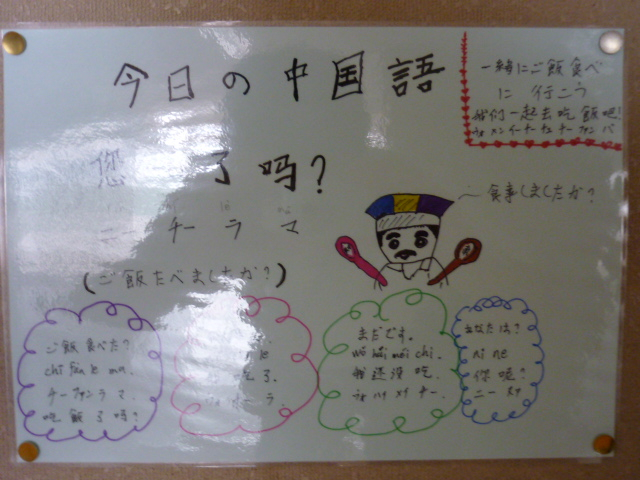 今日の中国語
一緒にご飯食べ
に行こう
我们一起去吃飯吧!
ウォ メン イー チー チュ チー ファン バ
您 了吗?
ニー チー ラ マ
(ご飯たべましたか?)
食事しましたか?
ご飯食べた?
chi fan le ma.
チーファンラマ.
吃飯了嗎?
le
吃了.
チーラ.
まだです.
wo hai mei chi.
我還沒吃.
ウォ ハイ メイ チー.
あなたは?
ni ne
你呢?
ニー